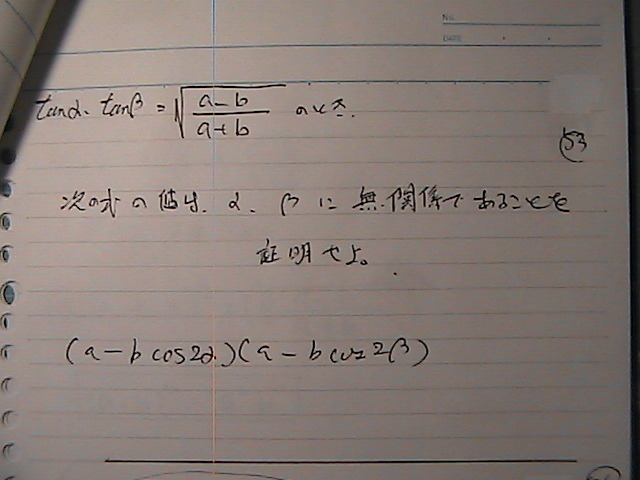 No.
DATE
tanα・tanβ = √((a-b)/(a+b)) のとき.
53
次の式の値は、α、βに無関係であることを
証明せよ。
(a-b cos2α)(a-b cos2β)